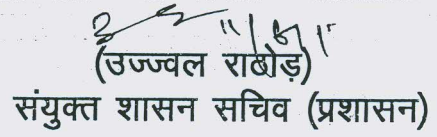 (उज्ज्वल राठोड़)
संयुक्त शासन सचिव (प्रशासन)